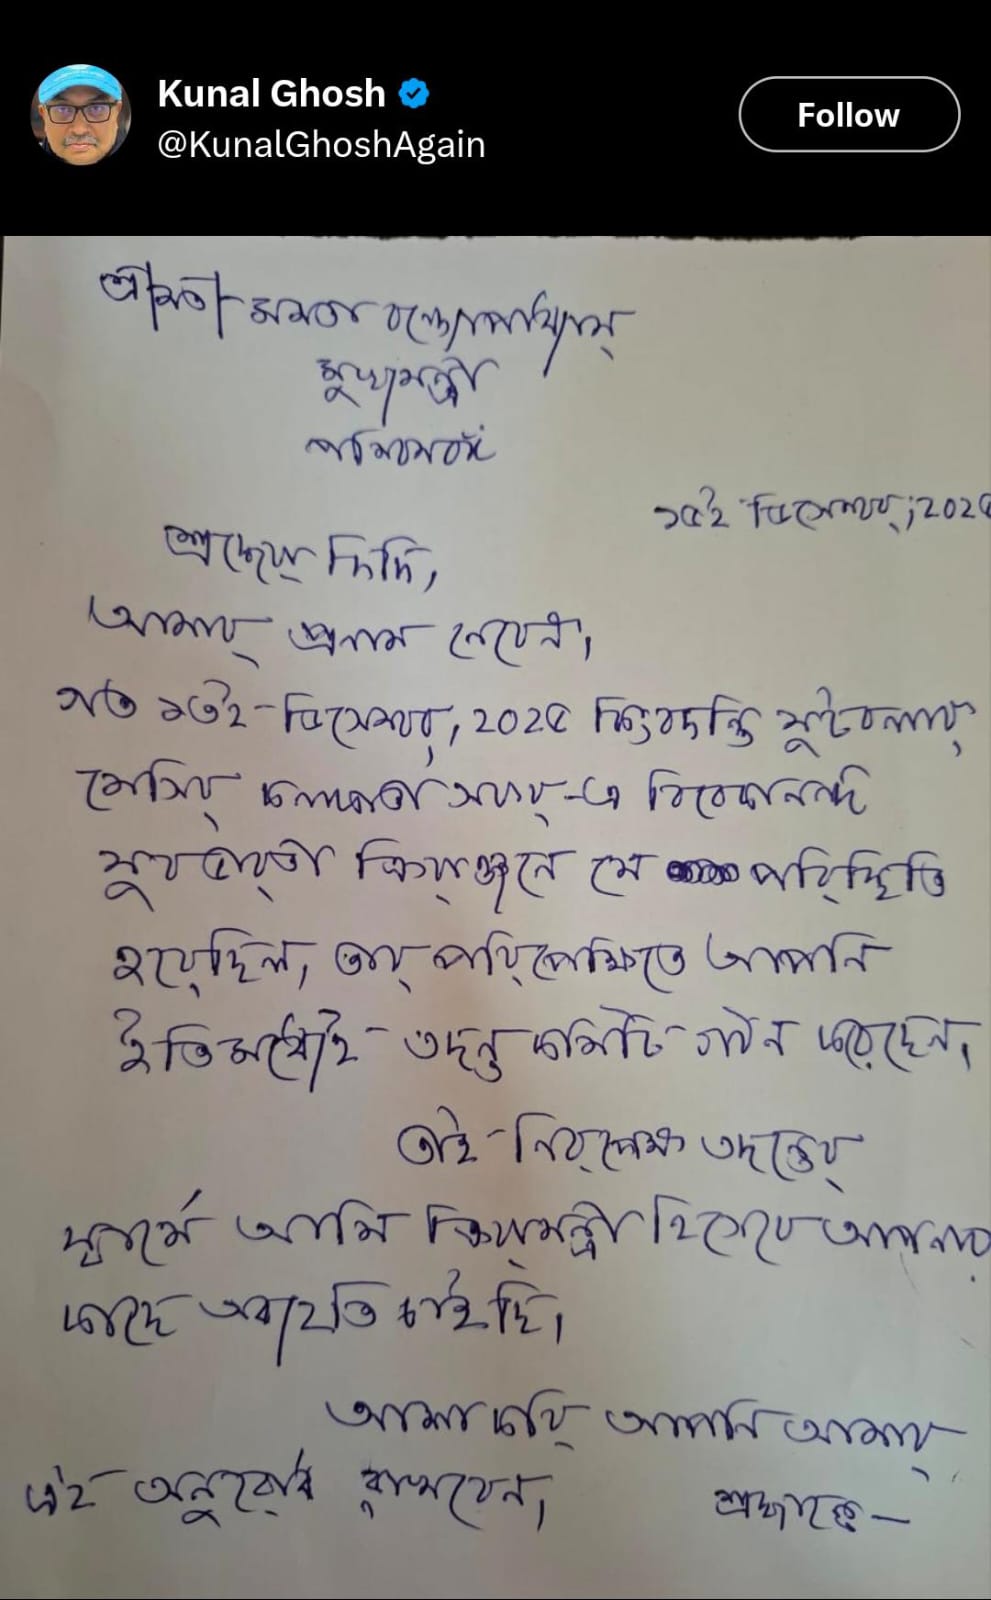 Kunal Ghosh
@KunalGhoshAgain
Follow
শ্রীমতী মমতা বন্দ্যোপাধ্যায়
মুখ্যমন্ত্রী
পশ্চিমবঙ্গ
১৫ই ডিসেম্বর, ২০২৫
শ্রদ্ধেয় দিদি,
আমার প্রনাম নেবেন।
গত ১৩ই ডিসেম্বর, ২০২৫ কিংবদন্তি ফুটবলার
মেসির কলকাতা সফর-এ বিবেকানন্দ
যুবভারতী ক্রীড়াঙ্গনে যে পরিস্থিতি
হয়েছিল, তার পরিপ্রেক্ষিতে আপনি
ইতিমধ্যেই তদন্ত কমিটি গঠন করেছেন।
তাই নিরপেক্ষ তদন্তের
স্বার্থে আমি ক্রীড়ামন্ত্রী হিসেবে আপনার
কাছে অব্যহতি চাইছি।
আশা করি আপনি আমার
এই অনুরোধ রাখবেন।
শ্রদ্ধান্তে —